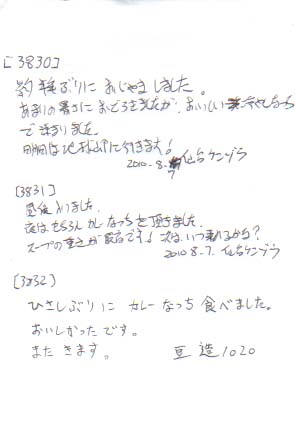 [3830]
年ぶりに おじゃましました。
あまりの暑さに おどろきましたが、おいしい 冷やしなっち
で
明日は に行きます!
2010.8. 仙台ケンゾウ
[3831]
ました。
夜はもちろん カレーなっち を頂きました。
スープの が最高です! 次は、いつ来れるかな?
2010 8-7. 仙台ケンゾウ
[3832]
ひさしぶりに カレーなっち 食べました。
おいしかった です。
また きます。 豆造1020